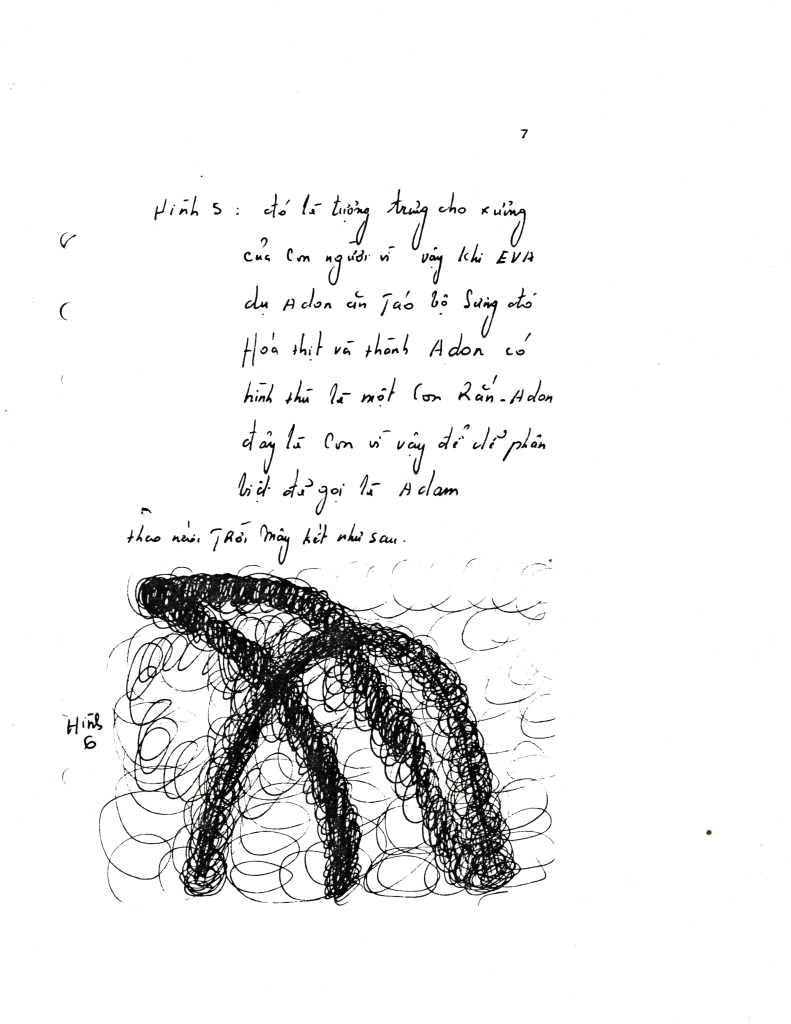 7
Hình 5 : đó là tượng trưng cho xưởng
của Con người vì vậy khi EVA
dụ Adon ăn Táo bộ Sừng đó
Hóa thịt và thành Adon có
hình thù là một Con Rắn - Adon
đây là Con vì vậy để dể phân
biệt để gọi là Adam
theo nơi TRỜI Mây kết như sau.
Hình
6